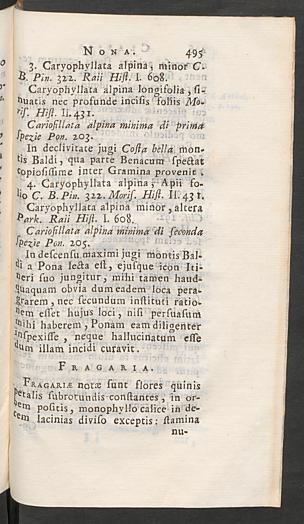 NONA. 495
3. Caryophyllata alpina, minor C.
B. Pin. 322. Raii Hiſt. I. 608.
Caryophyllata alpina longifolia, ſi-
nuatis nec profunde inciſis foliis Mo-
riſ. Hiſt. II. 431.
Cariofillata alpina minima di prima
ſpezie Pon. 203.
In declivitate jugi Coſta bella mon-
tis Baldi, qua parte Benacum ſpectat
copioſiſſime inter Gramina provenit.
4. Caryophyllata alpina, Apii fo-
lio C. B. Pin. 322. Moriſ. Hiſt. II. 431.
Caryophyllata alpina minor, altera
Park. Raii Hiſt. I. 608.
Cariofillata alpina minima di ſeconda
ſpezie Pon. 205.
In deſcenſu maximi jugi montis Bal-
di a Pona lecta eſt, ejuſque icon Iti-
neri ſuo jungitur, mihi tamen haud-
quaquam obvia dum eadem loca pera-
grarem, nec ſecundum inſtituti ratio-
nem eſſet hujus loci, niſi perſuaſum
mihi haberem, Ponam eam diligenter
inſpexiſſe, neque hallucinatum eſſe
dum illam incidi curavit.
FRAGARIA.
FRAGARIÆ notæ ſunt flores quinis
petalis ſubrotundis conſtantes, in or-
bem poſitis, monophyllo calice in de-
cem lacinias diviſo exceptis: ſtamina
nu-